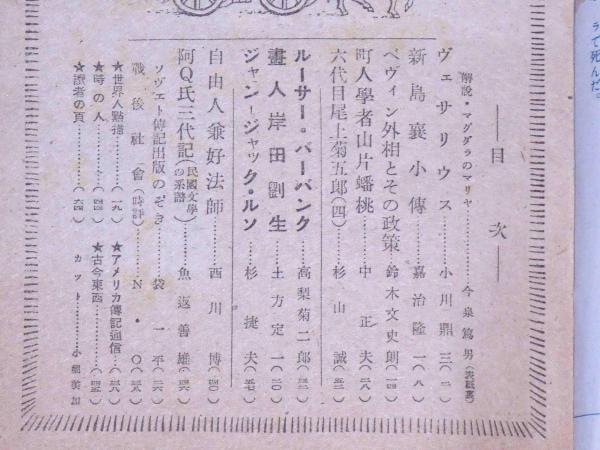 目次
解説・マグダラのマリヤ……今泉篤男(表紙裏)
ヴェサリウス……小川鼎三(二)
新島襄小傳……嘉治隆一(八)
ベヴィン外相とその政策 鈴木文史朗(一四)
町人學者山片蟠桃……中正夫(二八)
六代目尾上菊五郎(四)……杉山誠(五三)
ルーサー・バーバンク……高梨菊二郎(三三)
畫人岸田劉生……土方定一(二〇)
ジャン・ジャック・ルソ……杉捷夫(五七)
自由人兼好法師……西川博(四〇)
阿Q氏三代記(民國文學の系譜)……魚返善雄(四六)
ソヴェト傳記出版のぞき……袋一平(二六)
戰後社會(時評)……N・O(三九)
★世界人點描……(一九)
★アメリカ傳記通信……(三八)
★時の人……(四四)
★古今東西……(四五)
★讀者の頁……(六四)
カット……小堀美加
て死んだ。